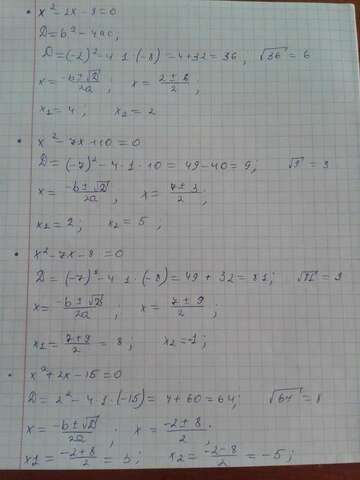 • x² - 2x - 8 = 0
D = b² - 4ac,
D = (-2)² - 4·1·(-8) = 4+32 = 36, √36 = 6
x = (-b ± √D)/2a, x = (2 ± 6)/2,
x₁ = 4, x₂ = 2
• x² - 7x + 10 = 0
D = (-7)² - 4·1·10 = 49 - 40 = 9; √9 = 3
x = (-b ± √D)/2a; x = (7 ± 3)/2;
x₁ = 2; x₂ = 5,
• x² - 7x - 8 = 0
D = (-7)² - 4·1·(-8) = 49 + 32 = 81; √81 = 9
x = (-b ± √D)/2a; x = (7 ± 9)/2;
x₁ = (7+9)/2 = 8; x₂ = -1;
• x² + 2x - 15 = 0
D = 2² - 4·1·(-15) = 4 + 60 = 64; √64 = 8
x = (-b ± √D)/2a; x = (-2 ± 8)/2;
x₁ = (-2+8)/2 = 3; x₂ = (-2-8)/2 = -5;